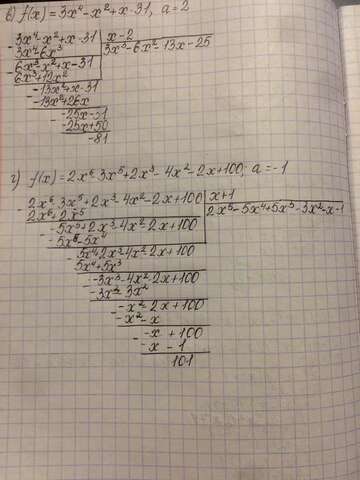 в) f(x) = 3x⁴-x²+x-31, a=2
- 3x⁴-x²+x-31 | x-2
3x⁴-6x³ | 3x³-6x²-13x-25
- 6x³-x²+x-31
6x³+12x²
- -13x²+x-31
-13x²+26x
- -25x-31
-25x+50
-81
г) f(x)=2x⁶-3x⁵+2x³-4x²-2x+100; a=-1
- 2x⁶-3x⁵+2x³-4x²-2x+100 | x+1
2x⁶+2x⁵ | 2x⁵-5x⁴+5x³-3x²-x-1
- -5x⁵+2x³-4x²-2x+100
-5x⁵-5x⁴
- 5x⁴+2x³-4x²-2x+100
5x⁴+5x³
- -3x³-4x²-2x+100
-3x³-3x²
- -x²-2x+100
-x²-x
- -x+100
-x-1
101